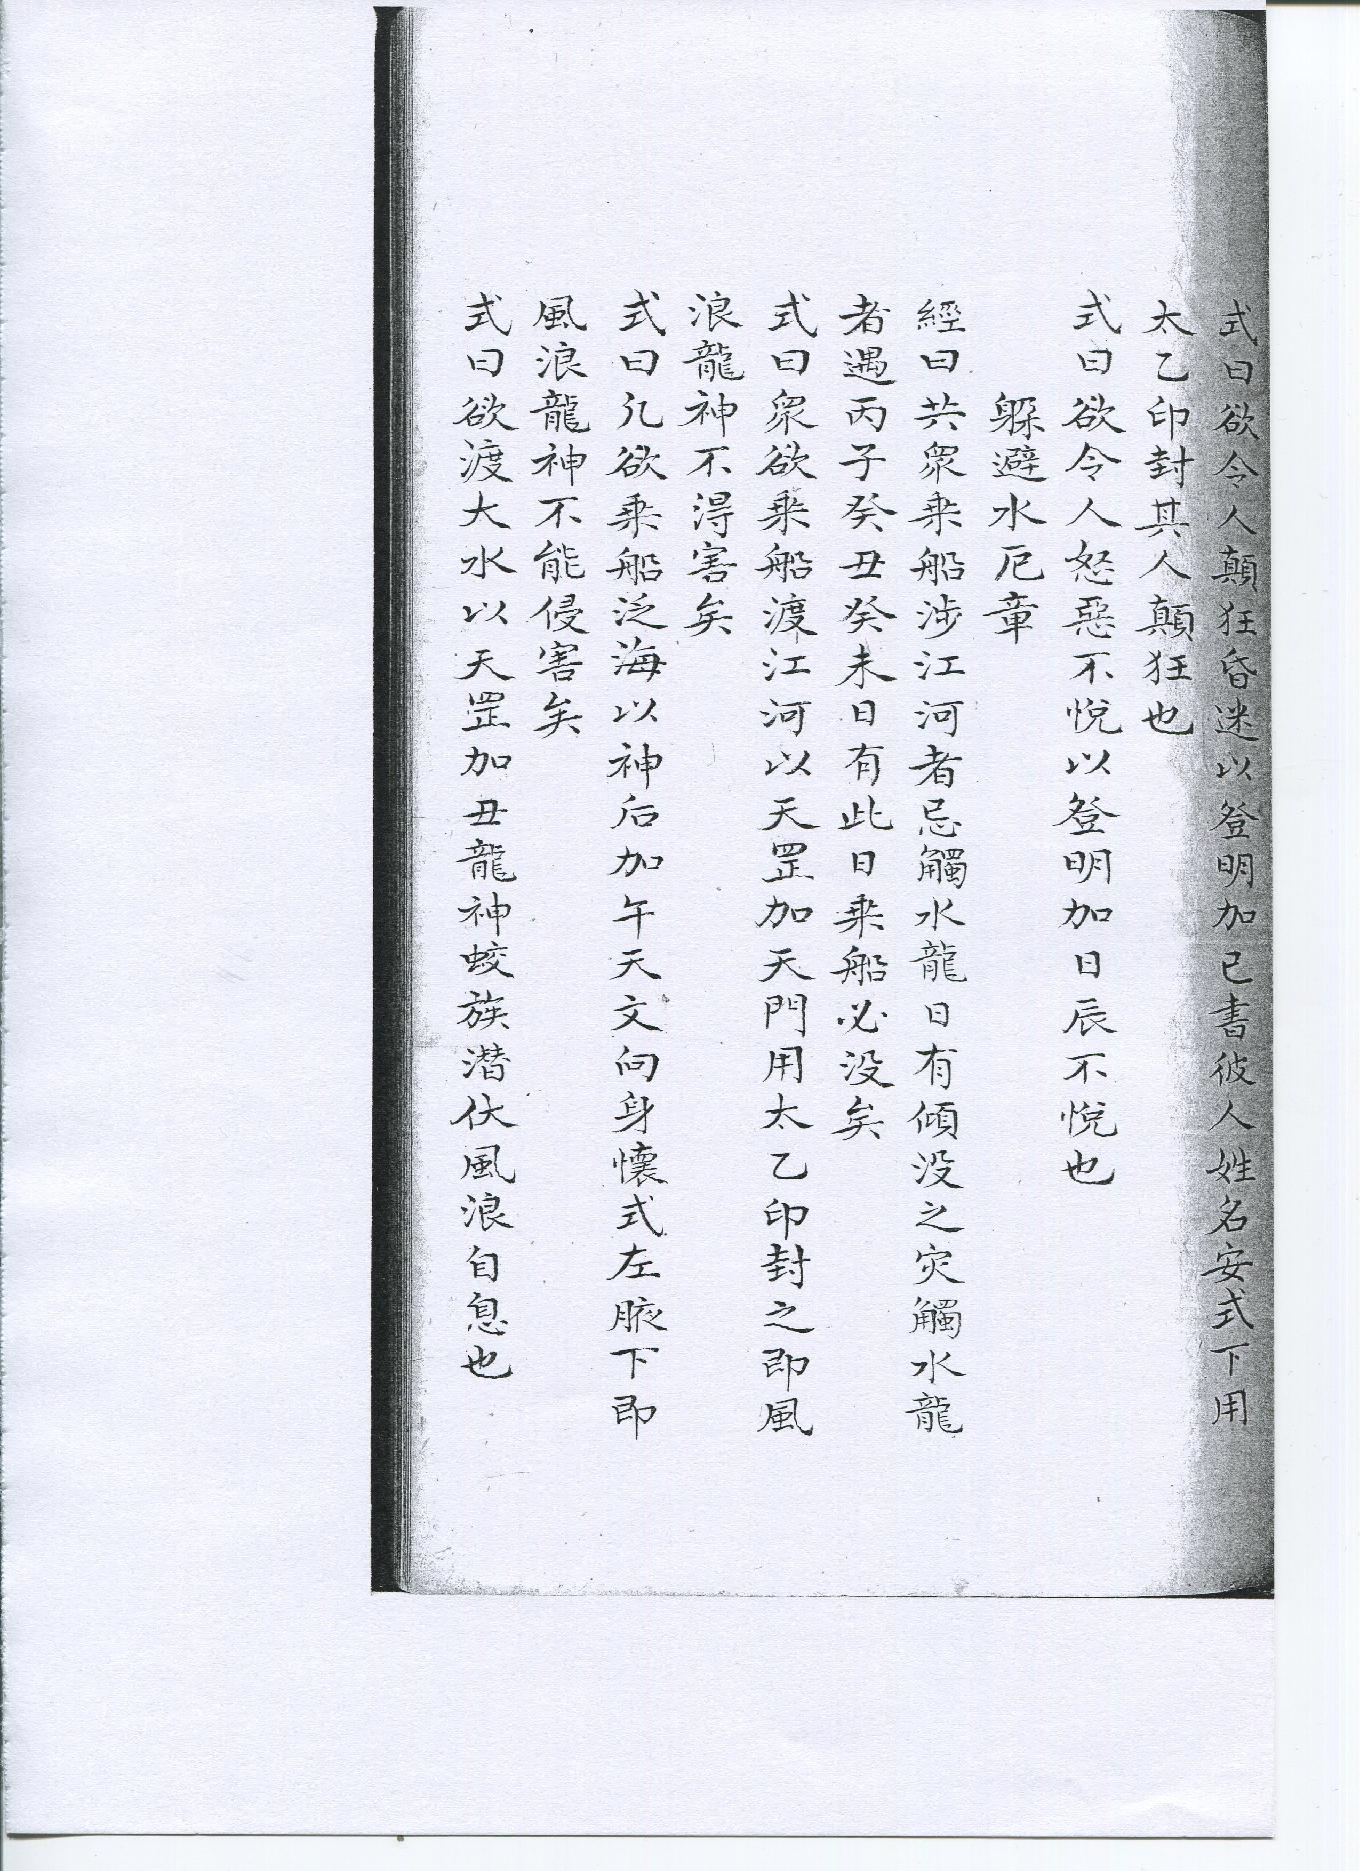 式曰欲令人顛狂昏迷以登明加巳書彼人姓名安式下用
太乙印封其人顛狂也
式曰欲令人怒惡不悅以登明加日辰不悅也
躲避水厄章
經曰共眾乘船涉江河者忌觸水龍日有傾没之灾觸水龍
者遇丙子癸丑癸未日有此日乘船必没矣
式曰眾欲乘船渡江河以天罡加天門用太乙印封之即風
浪龍神不得害矣
式曰凡欲乘船泛海以神后加午天文向身懷式左腋下即
風浪龍神不能侵害矣
式曰欲渡大水以天罡加丑龍神蛟族潜伏風浪自息也